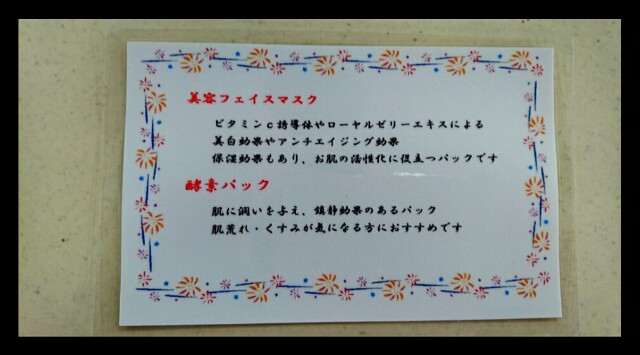 美容フェイスマスク
ビタミンc誘導体やローヤルゼリーエキスによる
美白効果やアンチエイジング効果
保湿効果もあり、お肌の活性化に役立つパックです
酵素パック
肌に潤いを与え、鎮静効果のあるパック
肌荒れ・くすみが気になる方におすすめです